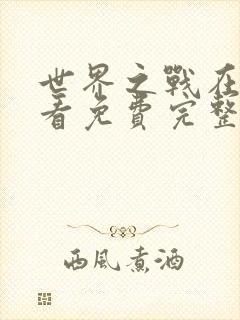 世界之戰在
看免費完整
西風煮酒